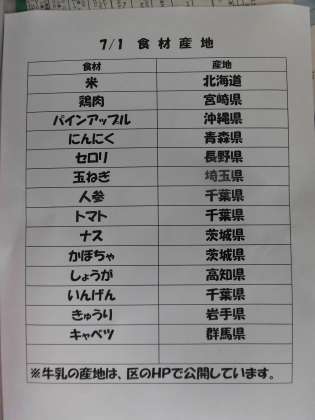 7/1 食材産地
食材 産地
米 北海道
鶏肉 宮崎県
パインアップル 沖縄県
にんにく 青森県
セロリ 長野県
玉ねぎ 埼玉県
人参 千葉県
トマト 千葉県
ナス 茨城県
かぼちゃ 茨城県
しょうが 高知県
いんげん 千葉県
きゅうり 岩手県
キャベツ 群馬県
※牛乳の産地は、区のHPで公開しています。